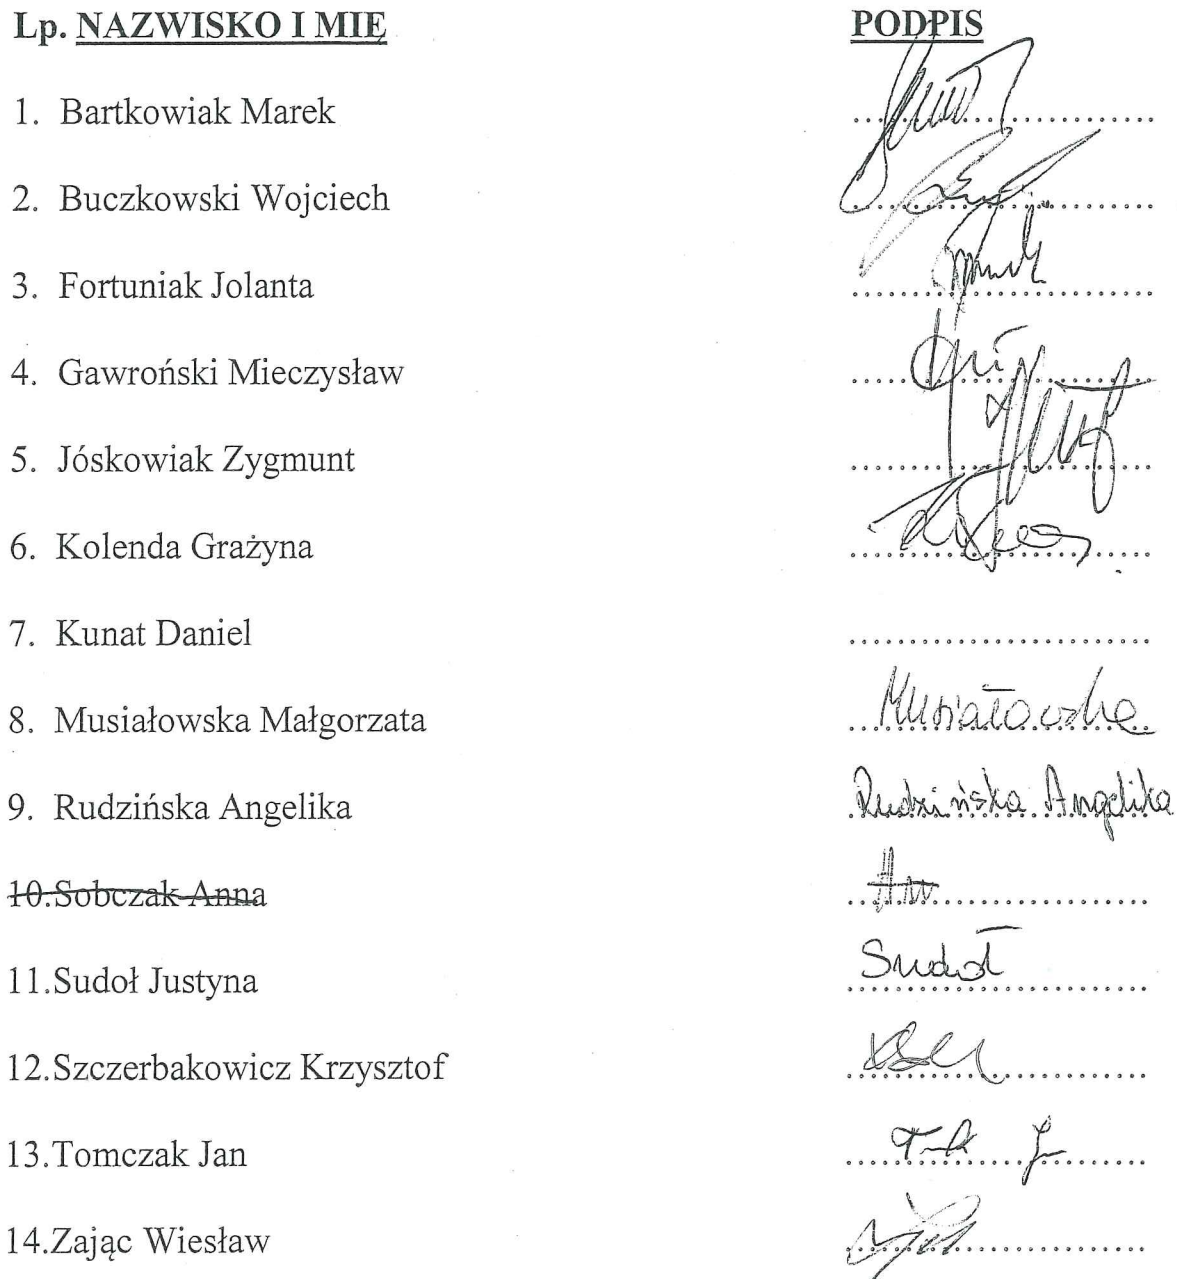 Lp. NAZWISKO I MIĘ PODPIS
1. Bartkowiak Marek ........................
2. Buczkowski Wojciech ........................
3. Fortuniak Jolanta ........................
4. Gawroński Mieczysław ........................
5. Jóskowiak Zygmunt ........................
6. Kolenda Grażyna ........................
7. Kunat Daniel ........................
8. Musiałowska Małgorzata Musiałowska
9. Rudzińska Angelika Rudzińska Angelika
10.Sobczak Anna ........................
11.Sudoł Justyna Sudoł
12.Szczerbakowicz Krzysztof ........................
13.Tomczak Jan ........................
14.Zając Wiesław ........................